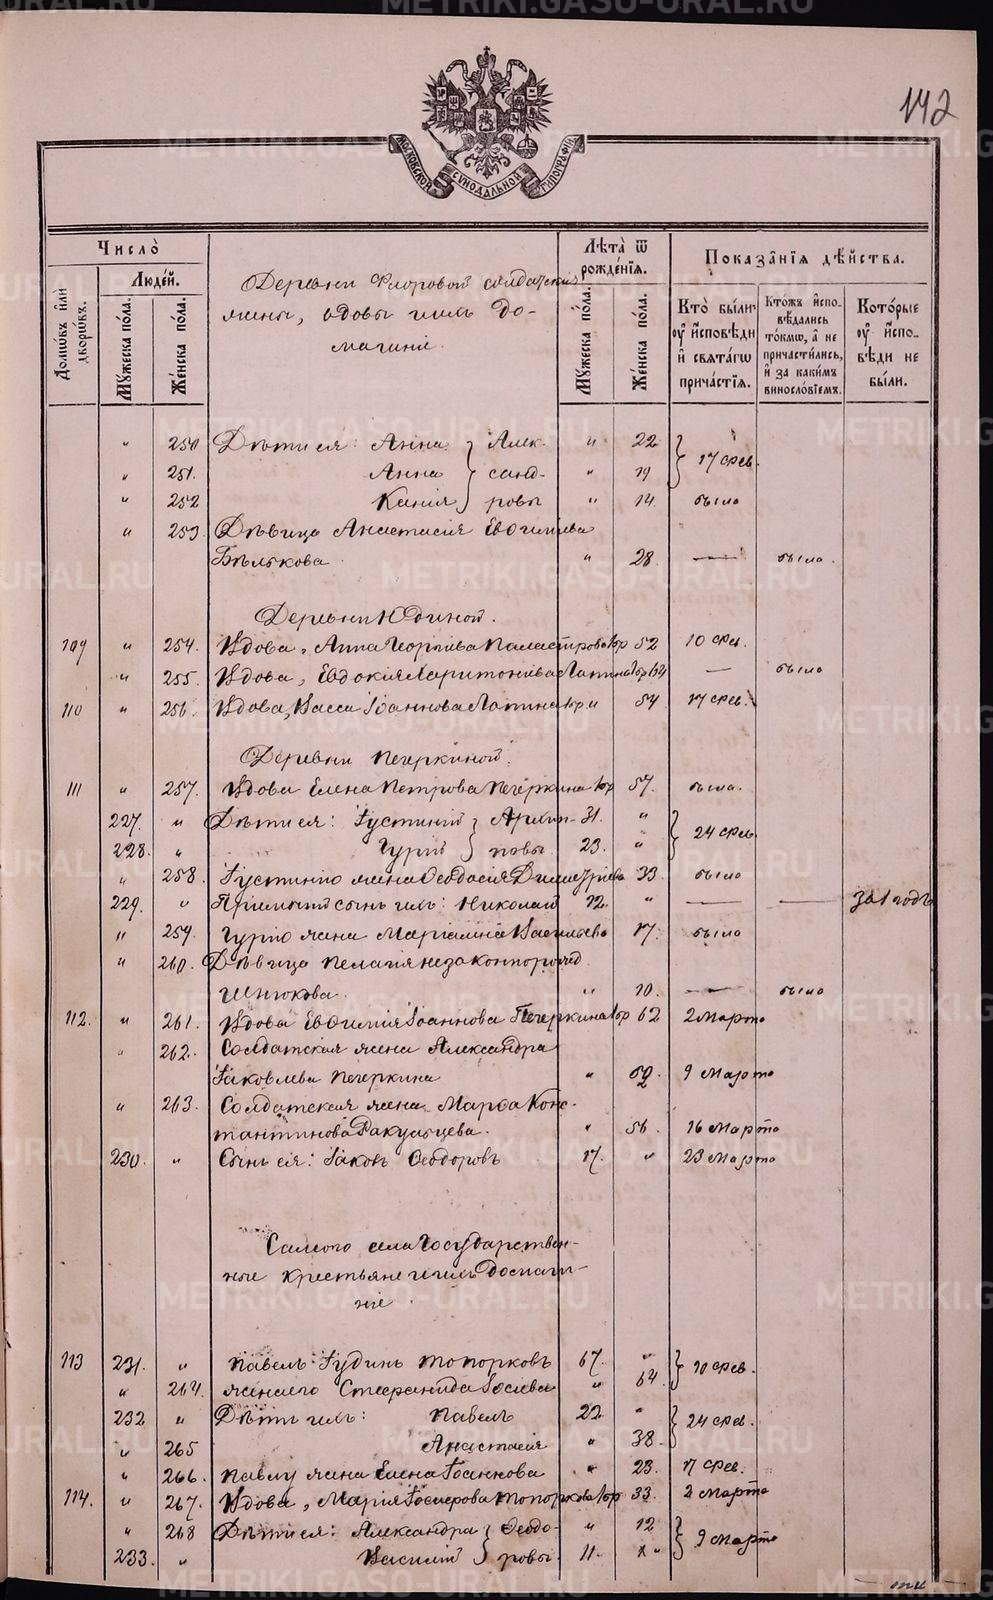 142
МОСКОВСКОЙ СѴНОДАЛЬНОЙ ТИПОГРАФІИ
Число̀
Людей.
Домовъ или дворовъ.
Мꙋжеска пола.
Женска пола.
Деревни Флоровой солдатскія
жены, вдовы и ихъ до-
машніе.
Лѣта ѿ рожденія.
Мꙋжеска пола.
Женска пола.
Показанія дѣйства.
Кто были оу исповѣди и святаго причастія.
Ктожъ исповѣдались токмо, а не причастились, и за какимъ винословіемъ.
Которые оу исповѣди не были.
" 250 Дѣти ея: Анна } Алек- " 22 } 17 фев.
" 251. Анна } санд- " 19
" 252 } ровы " 14. было
" 253 Дѣвица Анастасія Евѳиміева
Бѣлькова " 28. — было.
Деревни Юдиной.
109 " 254. Вдова, Анна Георгіева 52 10 фев.
" 255. Вдова, Евдокія Харитонова Лапина 64 — было
110 " 256. Вдова, Васса Іоаннова Лапина 54 17 фев.
Деревни Печеркиной.
111 " 257. Вдова Елена Петрова Печеркина 57. было.
227. " Дѣти ея: Іустиній } Архип- 31. " } 24 фев.
228. " Гурій } повы 23. "
" 258. Іустинію жена Ѳеодосія Димитріева 33. было
229. " Пріимный сынъ ихъ: Николай 12. " — — за 1 годъ
" 259. Гурію жена Маріамна Васильева 17. было
" 260. Дѣвица Пелагія незаконнорожд.
" 10. — было
112. " 261. Вдова Евѳимія Іоаннова Печеркина 62 2 марта
" 262. Солдатская жена Александра
Іаковлева Печеркина " 52. 9 марта
" 263. Солдатская жена Марѳа Конс-
тантинова Ракульцева. " 56. 16 марта
230. " Сынъ ея: Іаковъ Ѳеодоровъ 17. " 23 марта
Самого села Государствен-
ные крестьяне и ихъ домаш-
ніе.
113 231. " Павелъ Іудинъ Топорковъ 67. " } 10 фев.
" 264. жена его Стефанида Іосіева " 64.
232 " Дѣти ихъ: Павелъ 22. " } 24 фев.
" 265 Анастасія " 38.
" 266. Павлу жена Елена Іоаннова " 23. 17 фев.
114. " 267. Вдова, Марія Топоркова 33. 2 марта
" 268 Дѣти ея: Александра } Ѳеодо- " 12 } 9 марта
233. " Василій } ровы 11. "
METRIKI.GASO-URAL.RU